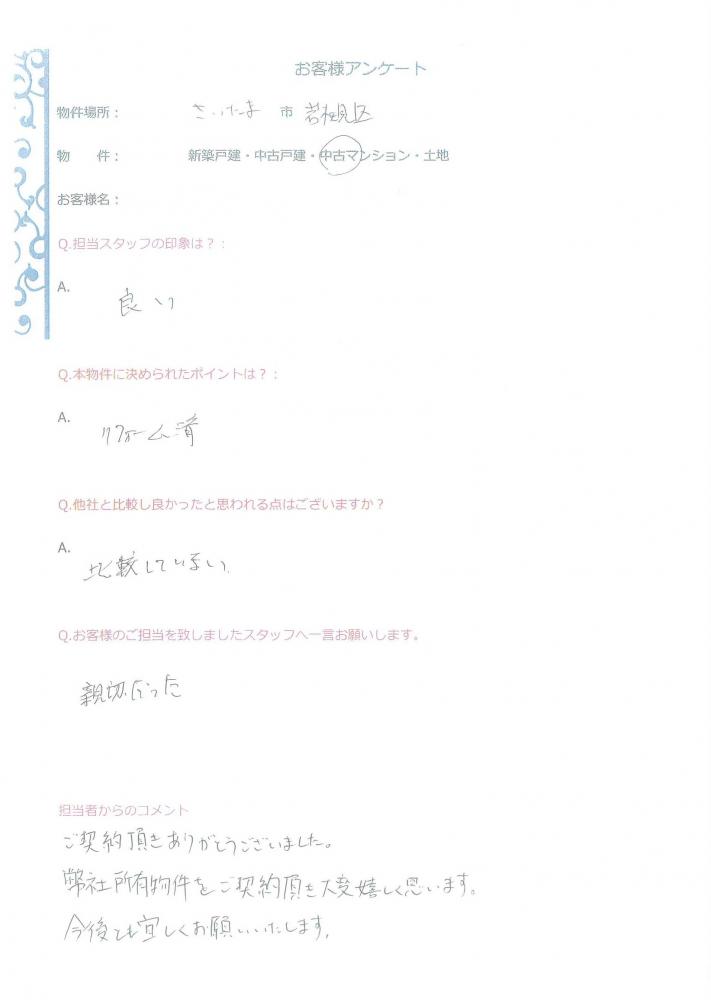 お客様アンケート
物件場所： さいたま 市 岩槻区
物　　件： 新築戸建・中古戸建・中古マンション・土地
お客様名：
Q.担当スタッフの印象は？：
A.
良い
Q.本物件に決められたポイントは？：
A.
リフォーム済
Q.他社と比較し良かったと思われる点はございますか？
A.
比較していない
Q.お客様のご担当を致しましたスタッフへ一言お願いします。
親切だった
担当者からのコメント
ご契約頂きありがとうございました。
弊社所有物件をご契約頂き大変嬉しく思います。
今後とも宜しくお願いいたします。